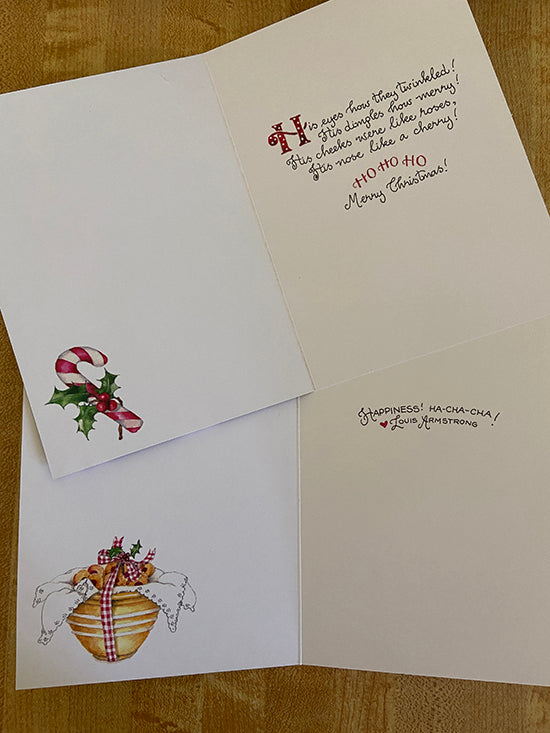 His eyes how they twinkled!
His dimples how merry!
His cheeks were like roses,
His nose like a cherry!
HO HO HO
Merry Christmas!
HAPPINESS! HA-CHA-CHA!
LOUIS ARMSTRONG